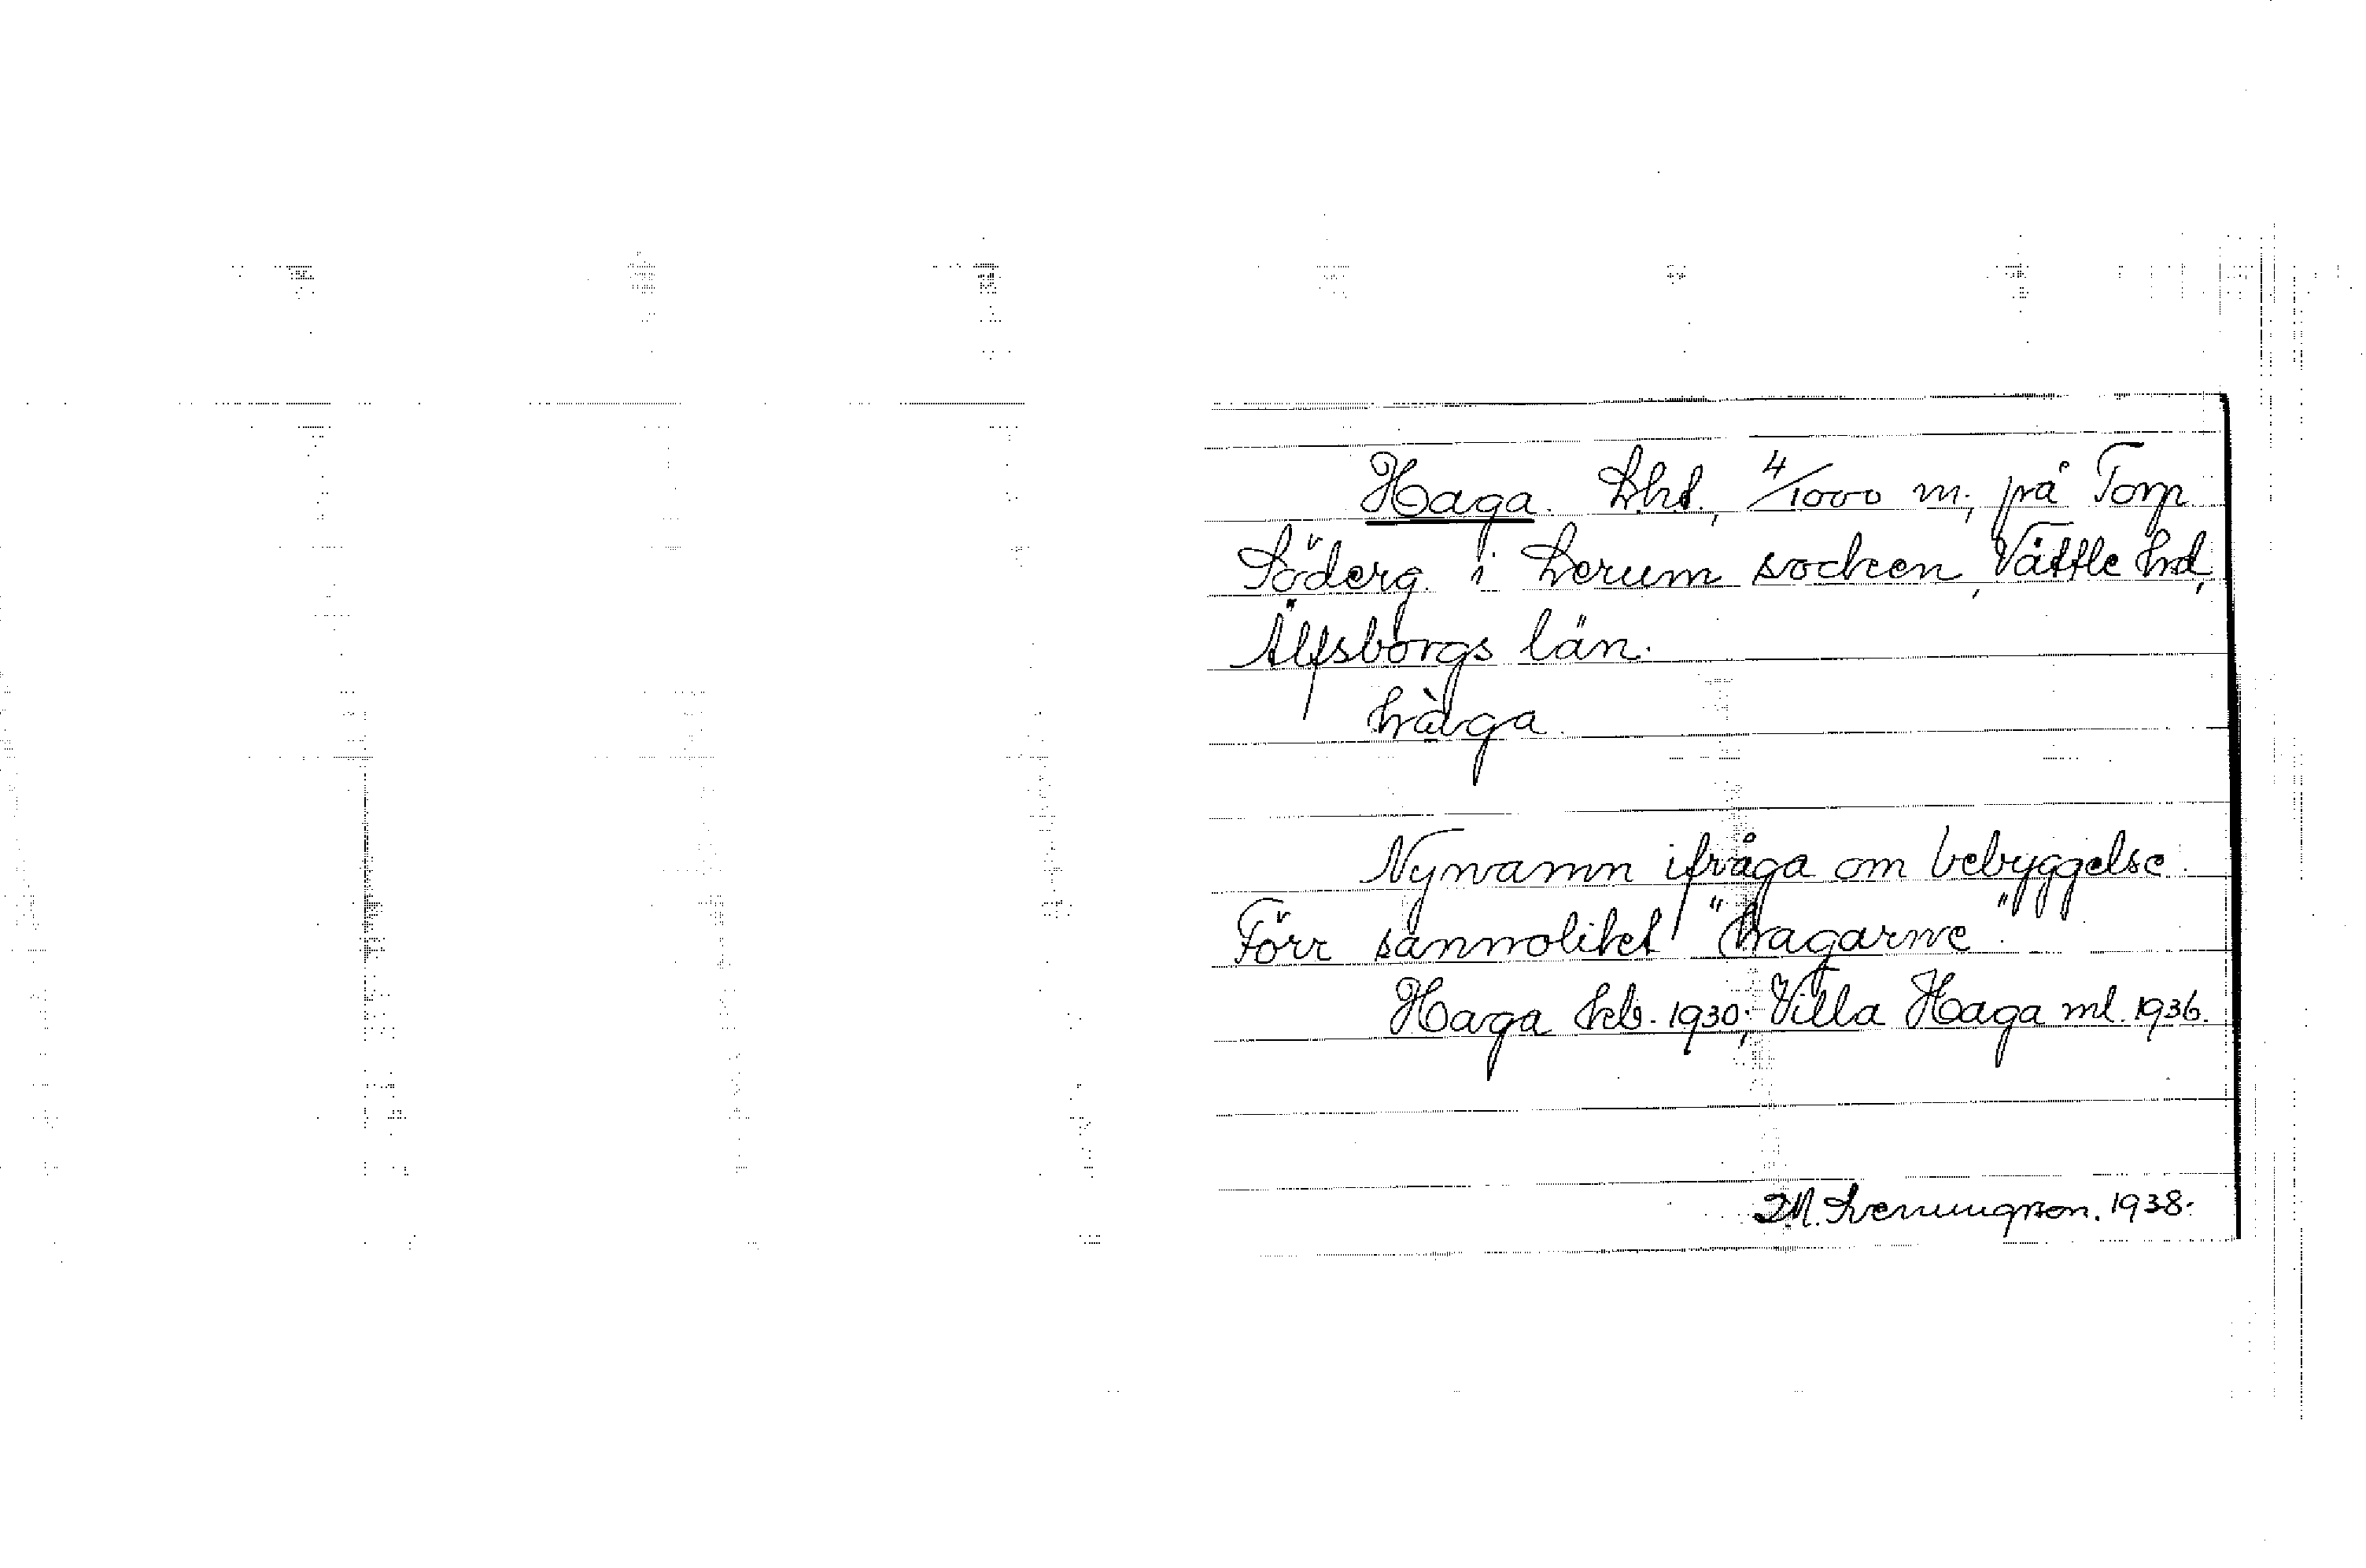 Haga. Lht., 4/1000 m., på Torp
Söderg. i Lerum socken, Vättle hd,
Älfsborgs län.
hàga.
Nynamn ifråga om bebyggelse.
Förr sannolikt "hagarne".
Haga kb. 1930; Villa Haga ml. 1936.
1938.